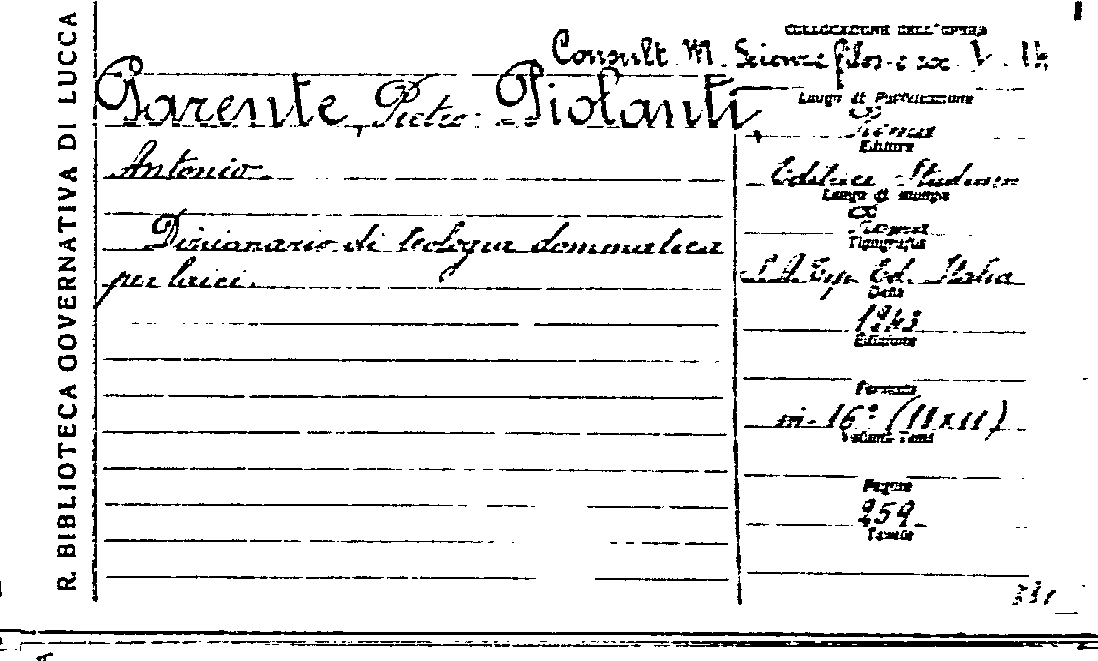 R. BIBLIOTECA GOVERNATIVA DI LUCCA
COLLOCAZIONE DELL'OPERA
Consult. M. Scienze filos. e
Parente, Pietro. Piolanti,
Antonio.
Dizionario di teologia dommatica
per laici.
Luogo di Pubblicazione
Roma
Editore
Editrice Studium
Luogo di stampa
Roma
Tipografia
S.A. Tip. Ed. Italia
Data
1943
Edizione
Formato
in-16° (11x11)
Volumi Tomi
Pagine
259
Tavole